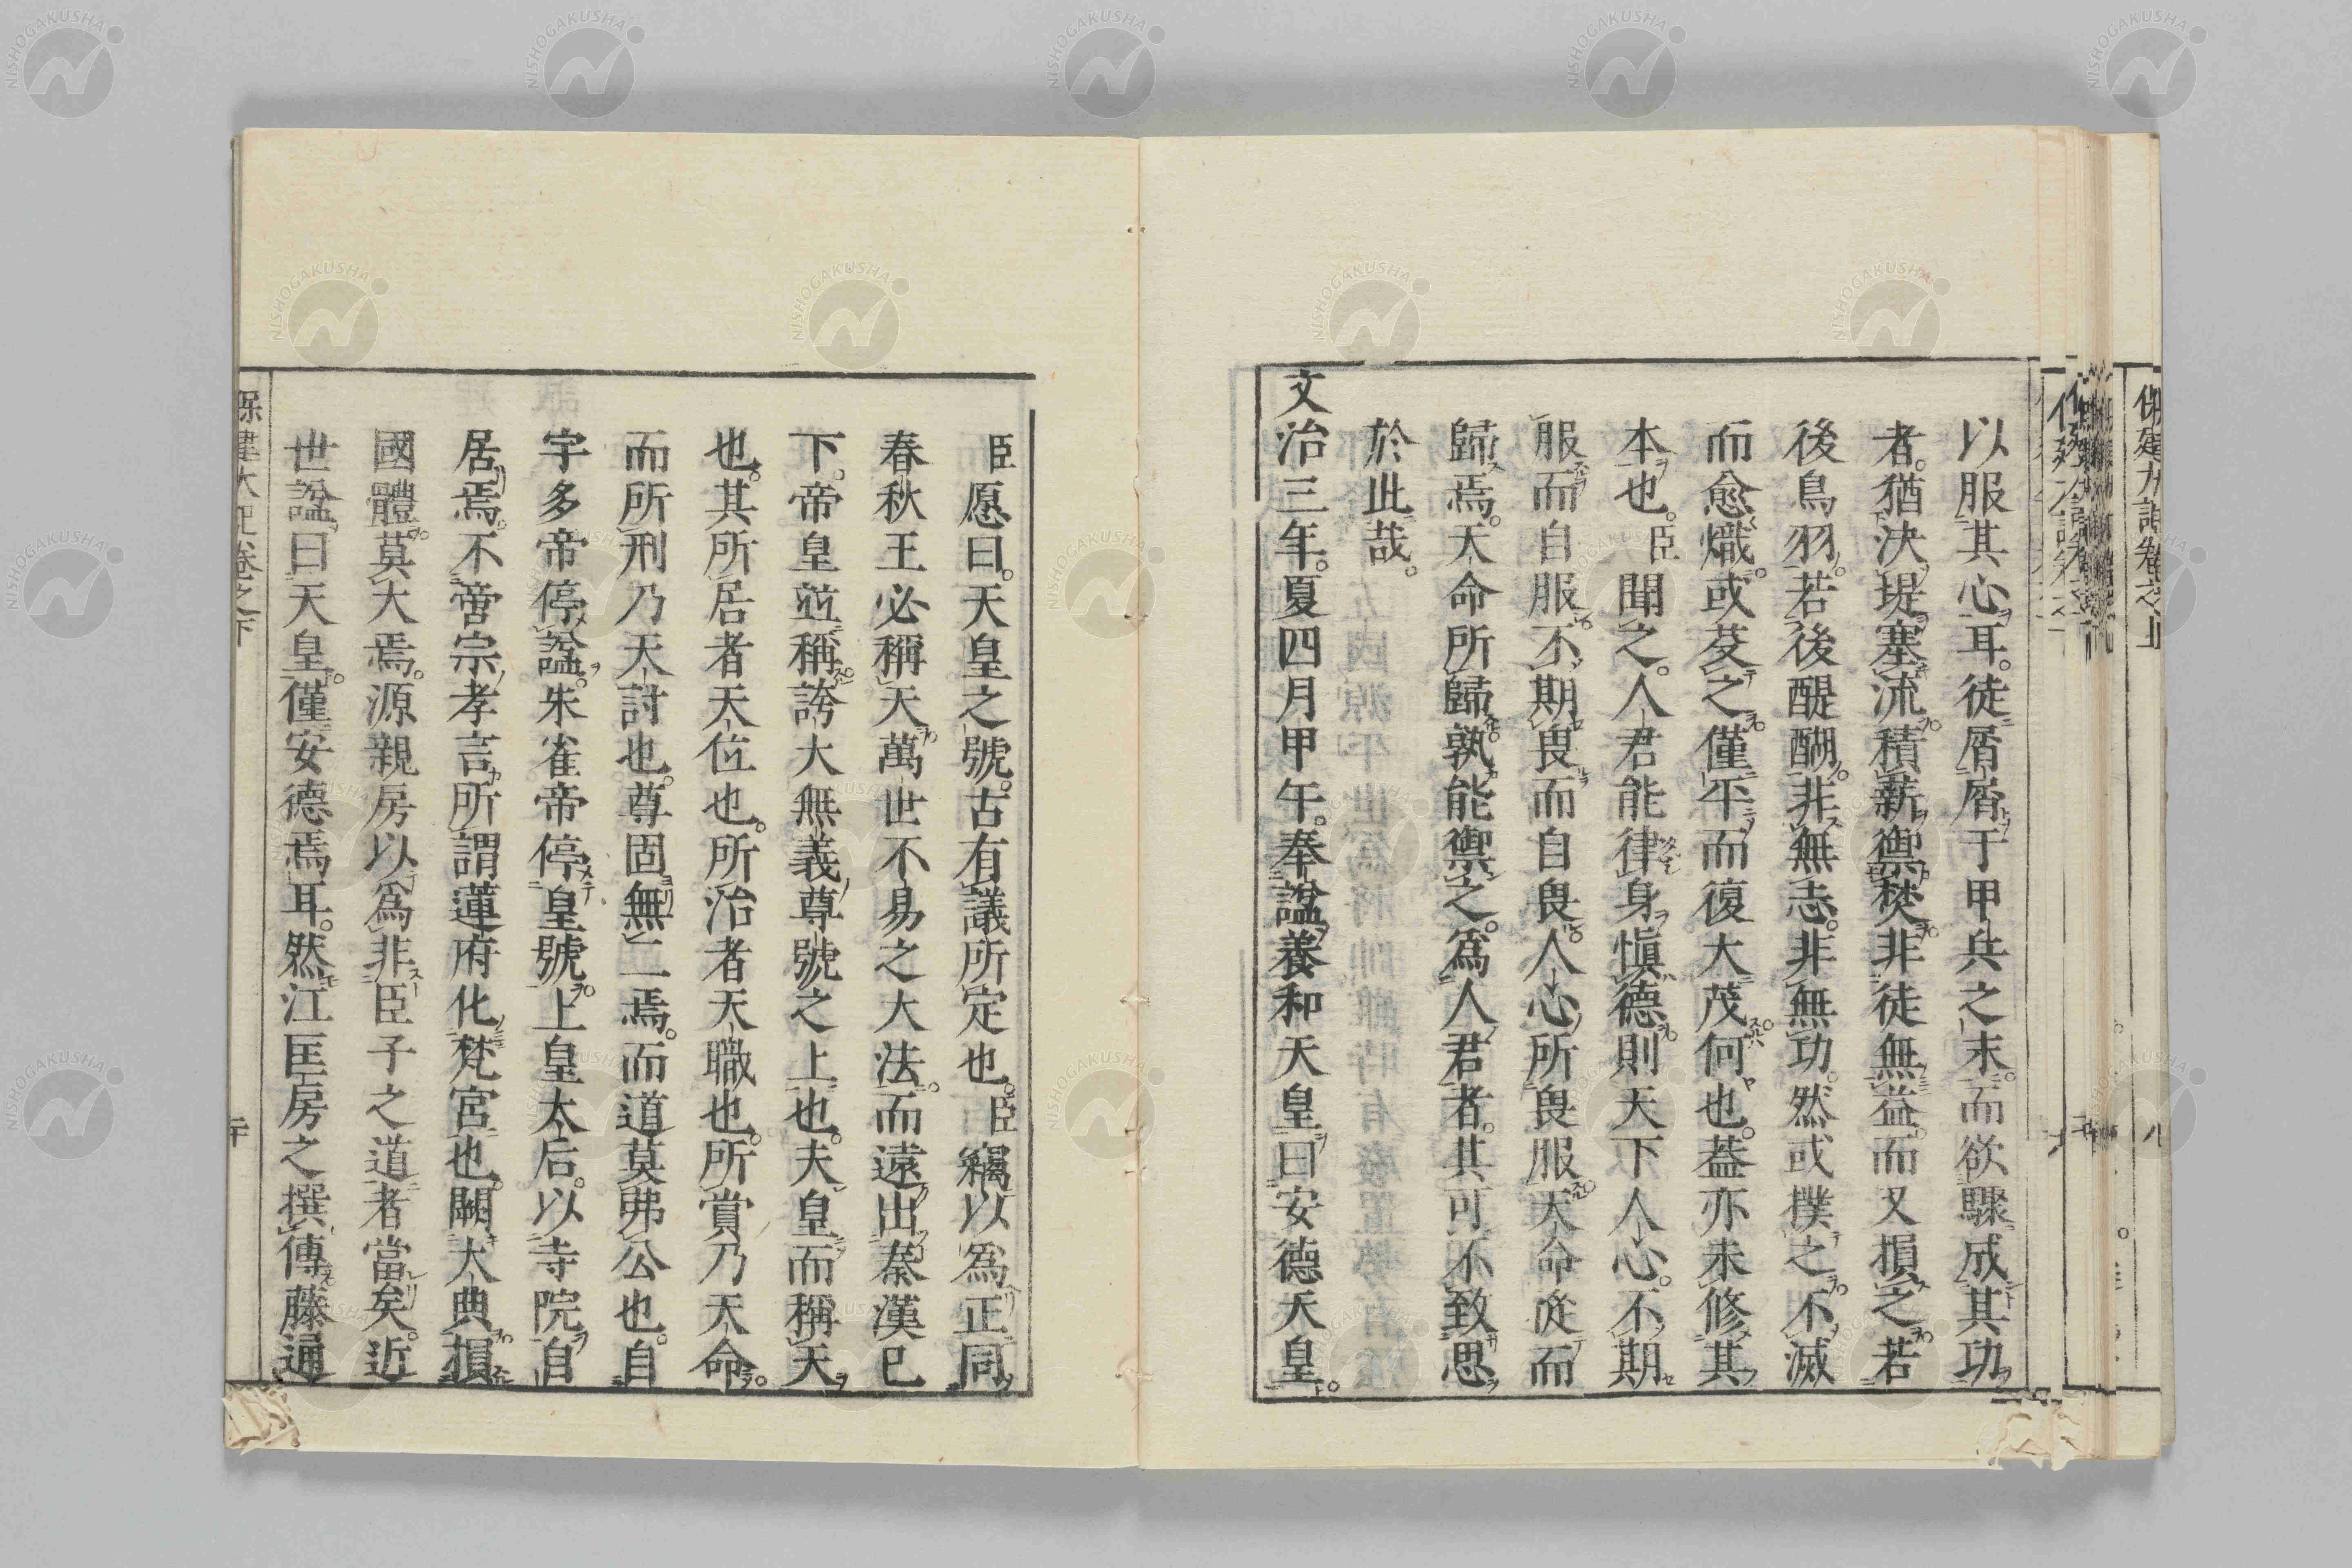 以服其心耳。徒屑屑于甲兵之末。而欲驟成其功
者。猶決堤塞流積薪禦焚。非徒無益。而又損之。若
後鳥羽。若後醍醐。非無志。非無功。然或撲之。不滅
而愈熾。或芟之。僅平而復大茂何也。蓋亦未修其
本也。臣聞之。人君能律身愼德則天下人心。不期
服而自服。不期畏而自畏。人心所畏服。天命從而
歸焉。天命所歸孰能禦之。爲人君者。其可不致思
於此哉。
文治三年。夏四月甲午。奉諡養和天皇曰安德天皇。
臣愿曰。天皇之號。古有議所定也。臣竊以爲正同
春秋王必稱天。萬世不易之大法。而遠出秦漢已
下。帝皇竝稱誇大無義尊號之上也。夫皇而稱天
也。其所居者天位也。所治者天職也。所賞乃天命。
而所刑乃天討也。尊固無二焉。而道莫弗公也。自
宇多帝停諡。朱雀帝停皇號。上皇太后。以寺院自
居焉。不啻宗孝言所謂蓮府化梵宮也。闕大典損
國體莫大焉。源親房以爲非臣子之道者當矣。近
世諡曰天皇。僅安德焉耳。然江匡房之撰傳藤通
保建大記卷之下
二十
保建大記卷之上